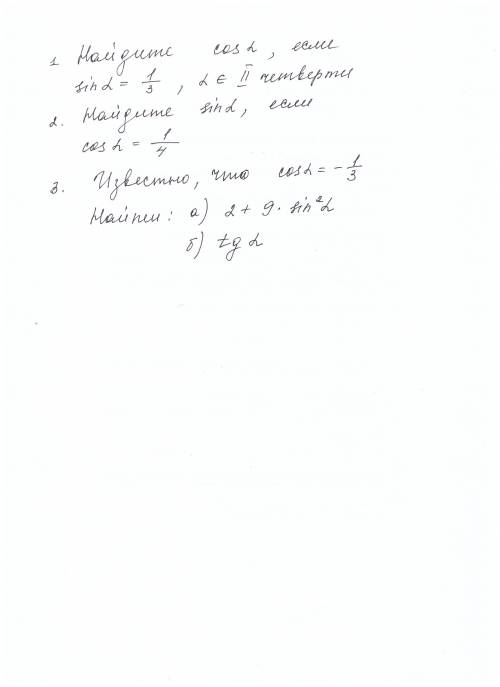 1 Найдите cos α, если
sin α = 1/3, α ∈ II четверти
2. Найдите sin α, если
cos α = 1/4
3. Известно, что cos α = -1/3
Найти: а) 2 + 9 · sin²α
б) tg α